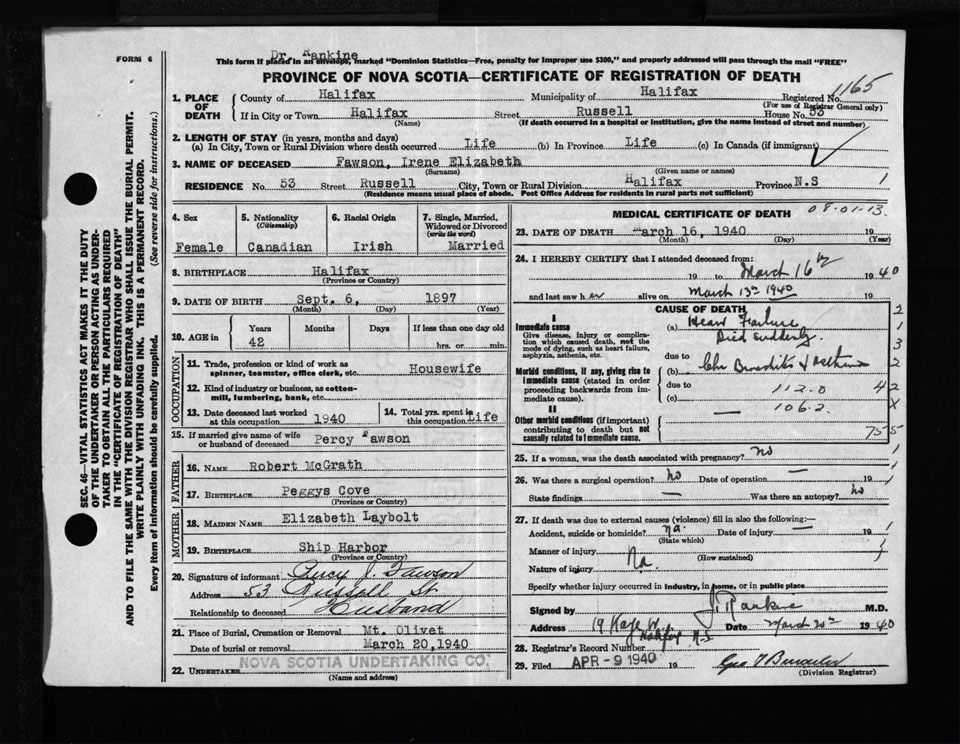 FORM 6
Dr. Rankine
This form if placed in an envelope, marked "Dominion Statistics—Free, penalty for improper use $300," and properly addressed will pass through the mail "FREE"
PROVINCE OF NOVA SCOTIA—CERTIFICATE OF REGISTRATION OF DEATH
1165
1. PLACE OF DEATH
County of Halifax Municipality of Halifax Registered No.
(For use of Registrar General only)
If in City or Town Halifax Street Russell House No. 53
(Name) (If death occurred in a hospital or institution, give the name instead of street and number)
2. LENGTH OF STAY (in years, months and days)
(a) In City, Town or Rural Division where death occurred Life (b) In Province Life (c) In Canada (if immigrant)
3. NAME OF DECEASED Fawson, Irene Elizabeth
(Surname) (Given name or names)
RESIDENCE No. 53 Street Russell City, Town or Rural Division Halifax Province N.S
(Residence means usual place of abode. Post Office Address for residents in rural parts not sufficient)
4. Sex
Female
5. Nationality
(Citizenship)
Canadian
6. Racial Origin
Irish
7. Single, Married, Widowed or Divorced
(write the word)
Married
8. BIRTHPLACE Halifax
(Province or Country)
9. DATE OF BIRTH Sept. 6, 1897
(Month) (Day) (Year)
10. AGE IN
Years Months Days If less than one day old
42 hrs. or min.
OCCUPATION
11. Trade, profession or kind of work as
spinner, teamster, office clerk, etc. Housewife
12. Kind of industry or business, as cotton-
mill, lumbering, bank, etc.
13. Date deceased last worked
at this occupation 1940
14. Total yrs. spent in
this occupation Life
15. If married give name of wife
or husband of deceased Percy Fawson
FATHER
16. NAME Robert McGrath
17. BIRTHPLACE Peggys Cove
(Province or Country)
MOTHER
18. MAIDEN NAME Elizabeth Laybolt
19. BIRTHPLACE Ship Harbor
(Province or Country)
20. Signature of informant Percy J. Fawson
Address 53 Russell St
Relationship to deceased Husband
21. Place of Burial, Cremation or Removal Mt. Olivet
Date of burial or removal March 20, 1940
22. UNDERTAKER NOVA SCOTIA UNDERTAKING CO.
(Name and address)
MEDICAL CERTIFICATE OF DEATH 08-01-13
23. DATE OF DEATH March 16, 1940 19
(Month) (Day) (Year)
24. I HEREBY CERTIFY that I attended deceased from:
19 to March 16th 1940
and last saw her alive on March 13th 1940 19
CAUSE OF DEATH
I
Immediate cause
Give disease, injury or complica-
tion which caused death, not the
mode of dying, such as heart failure,
asphyxia, asthenia, etc.
(a) Heart Failure
Died suddenly.
due to
Morbid conditions, if any, giving rise to
immediate cause (stated in order
proceeding backwards from im-
mediate cause).
(b) Chr Bronchitis & asthma
due to 112.0
(c) 106.2
II
Other morbid conditions (if important)
contributing to death but not
causally related to immediate cause.
25. If a woman, was the death associated with pregnancy? no
26. Was there a surgical operation? no Date of operation —
State findings — Was there an autopsy? no
27. If death was due to external causes (violence) fill in also the following:—
Accident, suicide or homicide? na. Date of injury — 19
(State which)
Manner of injury
(How sustained)
Nature of injury Na.
Specify whether injury occurred in industry, in home, or in public place
Signed by J. Rankine M.D.
Address 19 Kaye St. Halifax N.S. Date March 20th 1940
28. Registrar's Record Number
29. Filed APR - 9 1940 19
(Division Registrar)
SEC. 46—VITAL STATISTICS ACT MAKES IT THE DUTY
OF THE UNDERTAKER OR PERSON ACTING AS UNDER-
TAKER TO OBTAIN ALL THE PARTICULARS REQUIRED
IN THE "CERTIFICATE OF REGISTRATION OF DEATH"
AND TO FILE THE SAME WITH THE DIVISION REGISTRAR WHO SHALL ISSUE THE BURIAL PERMIT.
WRITE PLAINLY WITH UNFADING INK. THIS IS A PERMANENT RECORD.
Every item of information should be carefully supplied. (See reverse side for instructions.)